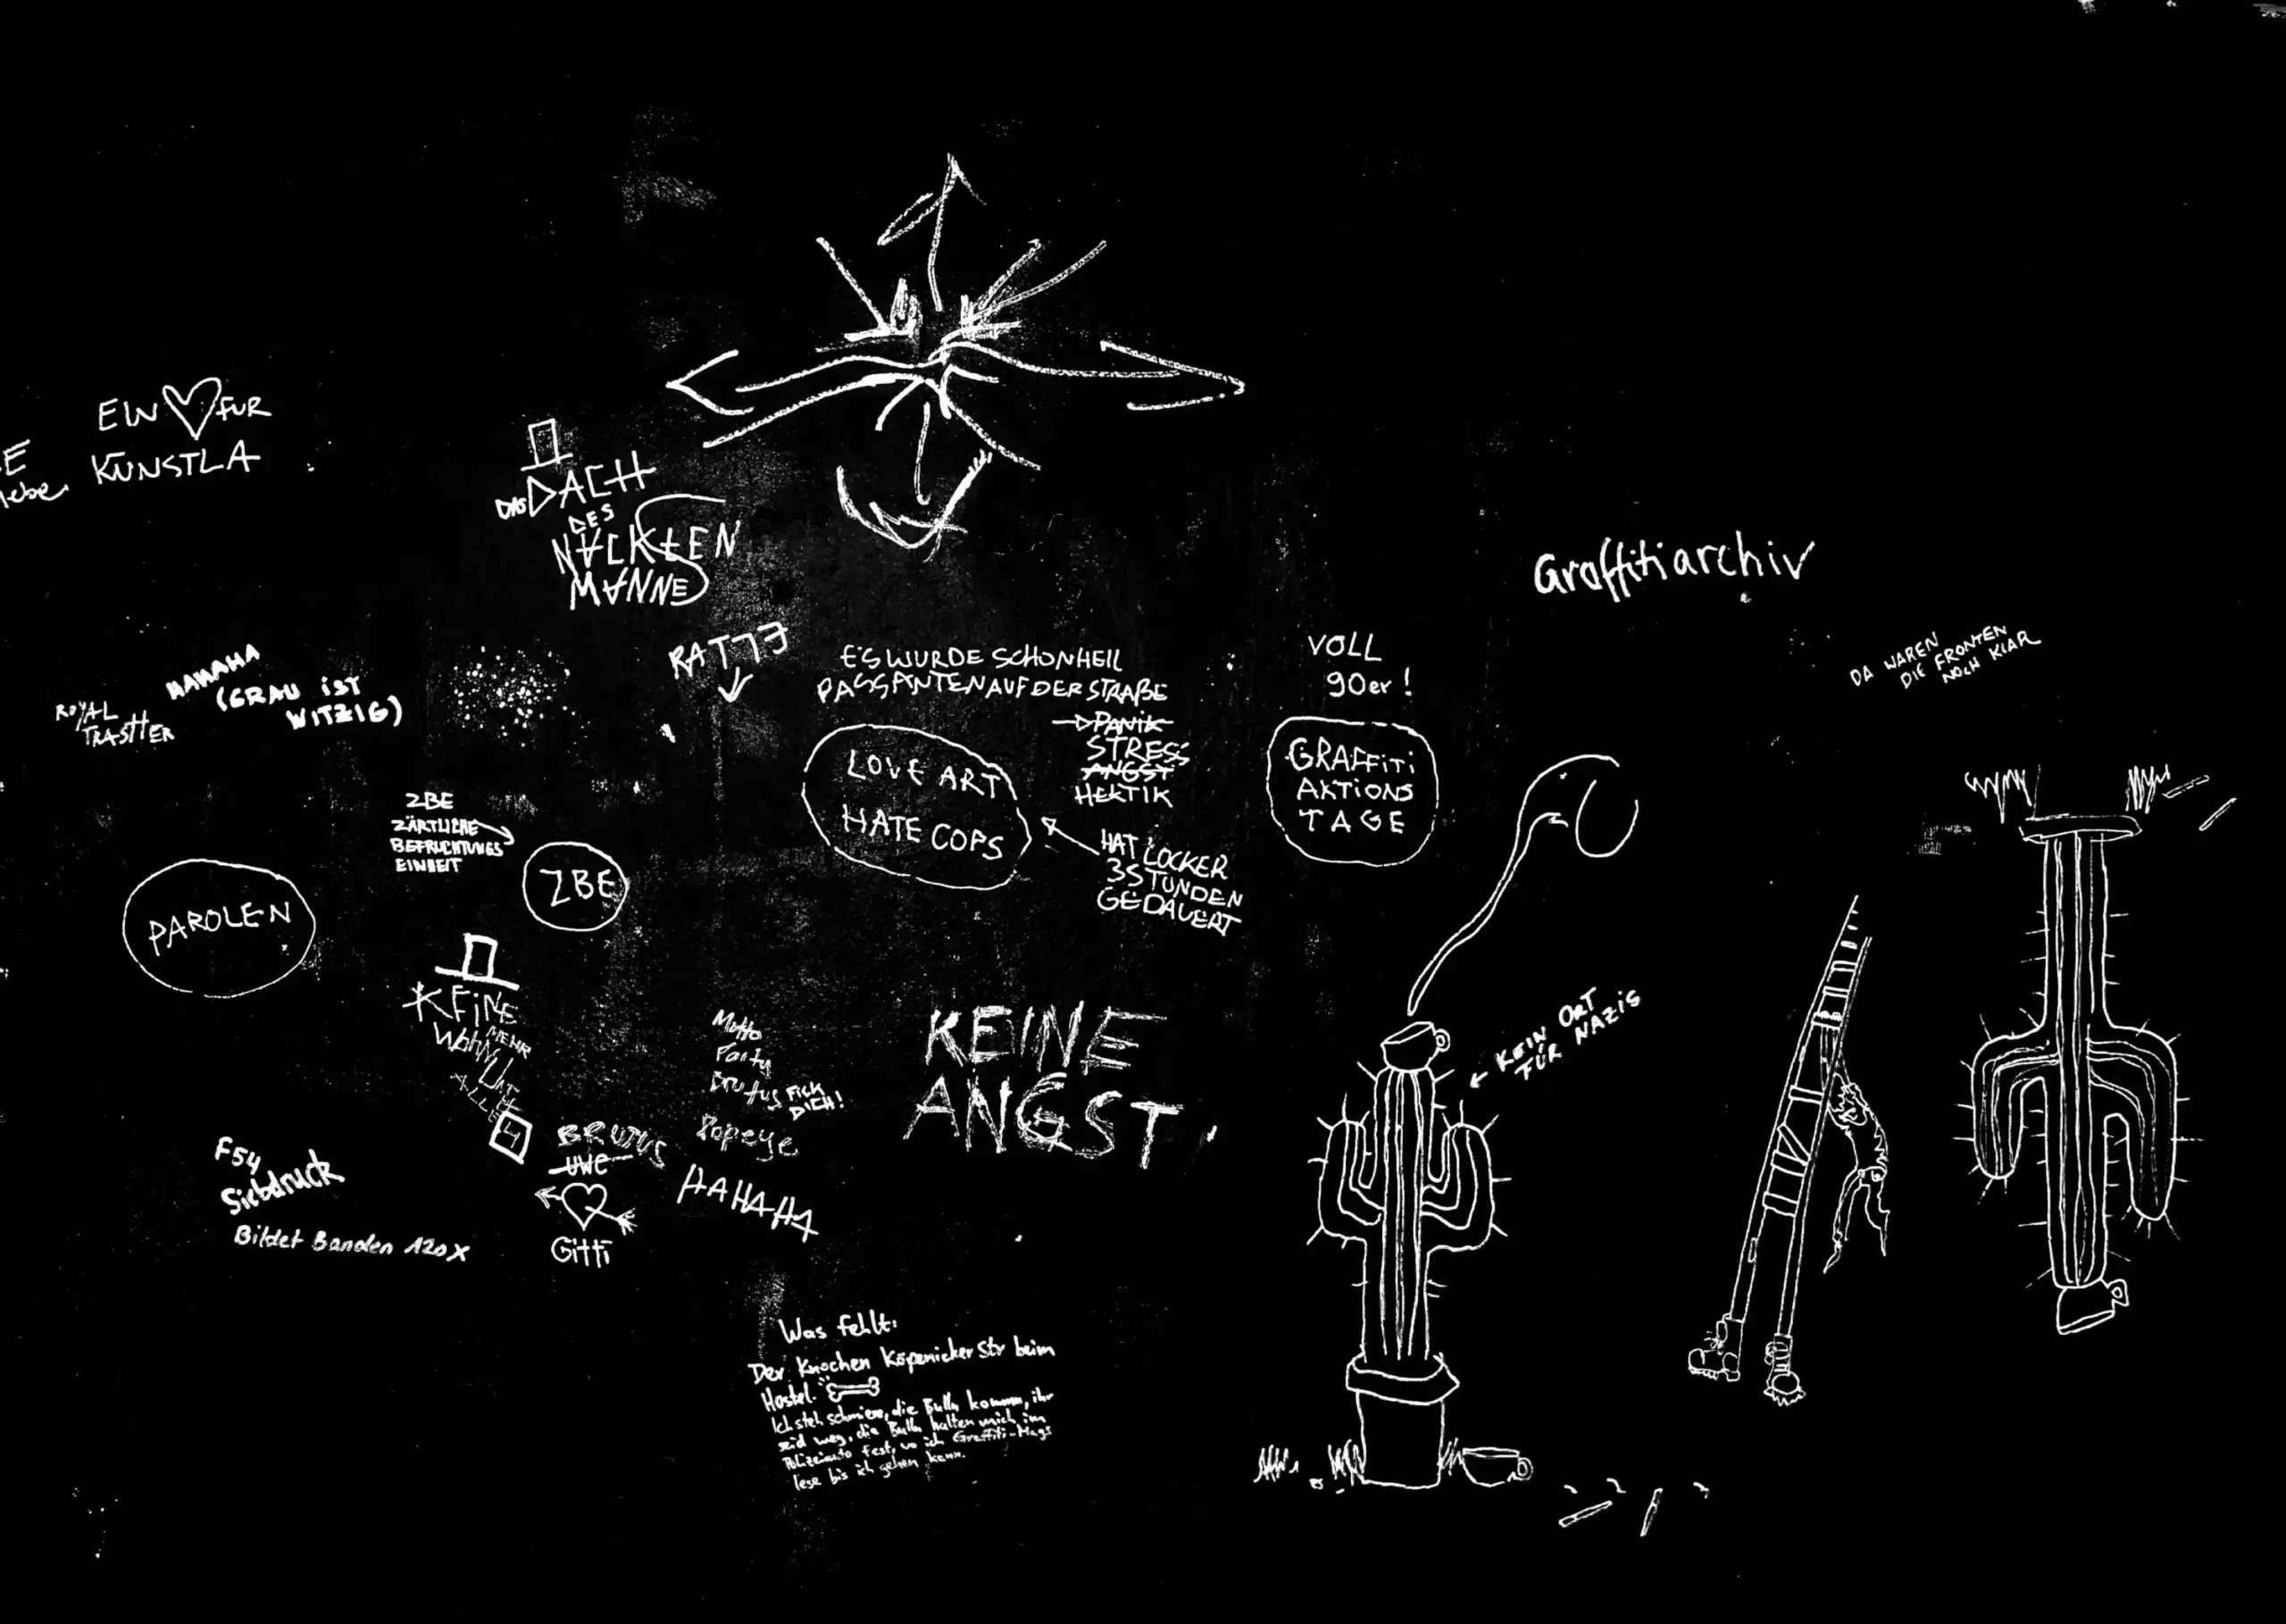 EIN ♡ FUR
KUNSTLA
DAS DACH
DES
NACKTEN
MANNES
Graffitiarchiv
RATTE
ES WURDE SCHON HELL
PASSANTEN AUF DER STRAßE
PANIK
STRESS
ANGST
HEKTIK
VOLL
90er!
DA WAREN
DIE FRONTEN
NOCH KLAR
HAHAHA
(GRAU iST
WITZIG)
ROYAL
TRASHER
LOVE ART
HATE COPS
GRAFFiTi
AKTiONS
TAGE
HAT LOCKER
3 STUNDEN
GEDAUERT
ZBE
ZÄRTLICHE
BEFRUCHTUNGS
EINHEIT
ZBE
PAROLEN
KEiNE
MEHR
KEINE
ANGST
← KEIN ORT
FÜR NAZIS
Motto
Party
Brutus FICK
DICH!
Popeye
HAHAHA
BRUTUS
UWE
Gitti
F54
Siebdruck
Bildet Banden 120x
Was fehlt:
Der Knochen Köpenicker Str beim
Hostel.
Ich steh schmiere, die Bulln kommen, ihr
seid weg, die Bulln halten mich im
Polizeiauto fest, wo ich Graffiti-Mags
lese bis ich gehen kann.